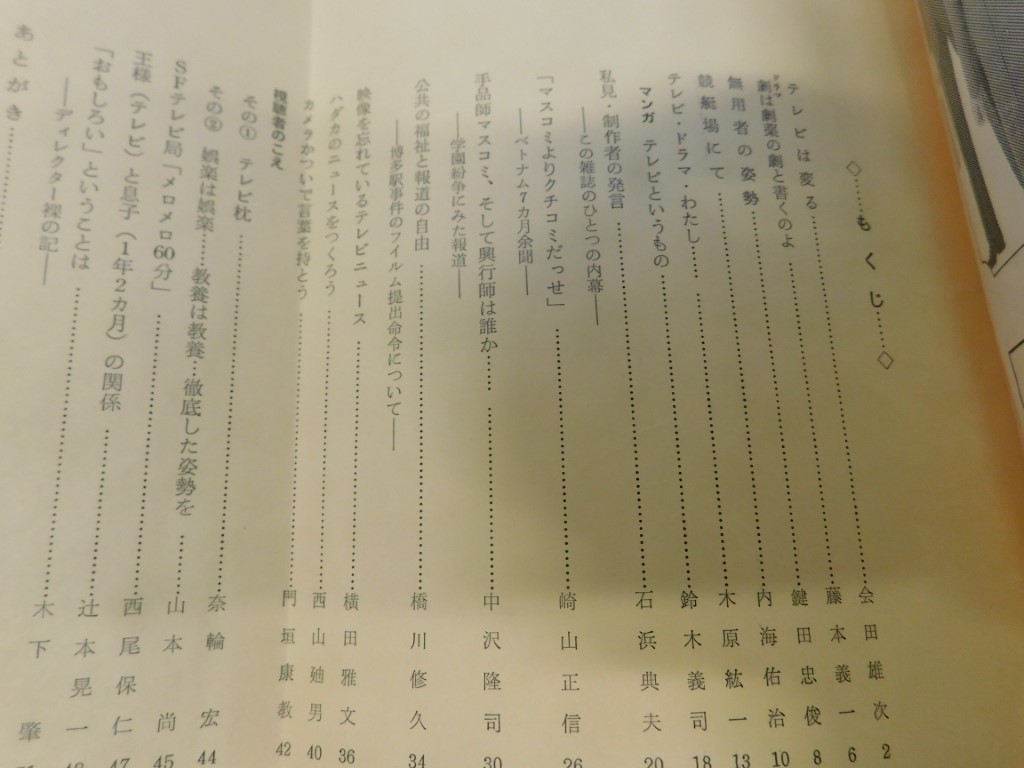 ◇……もくじ……◇
テレビは変る……会田雄次 2
劇は劇薬の劇と書くのよ……藤本義一 6
ドラマ
無用者の姿勢……鍵田忠俊 8
競艇場にて……内海佑治 10
テレビ・ドラマ・わたし……木原紘一 13
マンガ テレビというもの……鈴木義司 18
私見・制作者の発言……石浜典夫 20
――この雑誌のひとつの内幕――
「マスコミよりクチコミだっせ」……崎山正信 26
――ベトナム7カ月余聞――
手品師マスコミ、そして興行師は誰か……中沢隆司 30
――学園紛争にみた報道――
公共の福祉と報道の自由……橋川修久 34
――博多駅事件のフィルム提出命令について――
映像を忘れているテレビニュース……横田雅文 36
ハダカのニュースをつくろう……西山廸男 40
カメラかついで言葉を持とう……門垣康教 42
視聴者のこえ
その① テレビ枕……奈輪宏 44
その② 娯楽は娯楽……教養は教養・徹底した姿勢を……山本尚 45
SFテレビ局「メロメロ60分」……西尾保仁 47
王様（テレビ）と息子（1年2カ月）の関係……辻本晃一
「おもしろい」ということは……木下肇
――ディレクター裸の記――
あとがき……